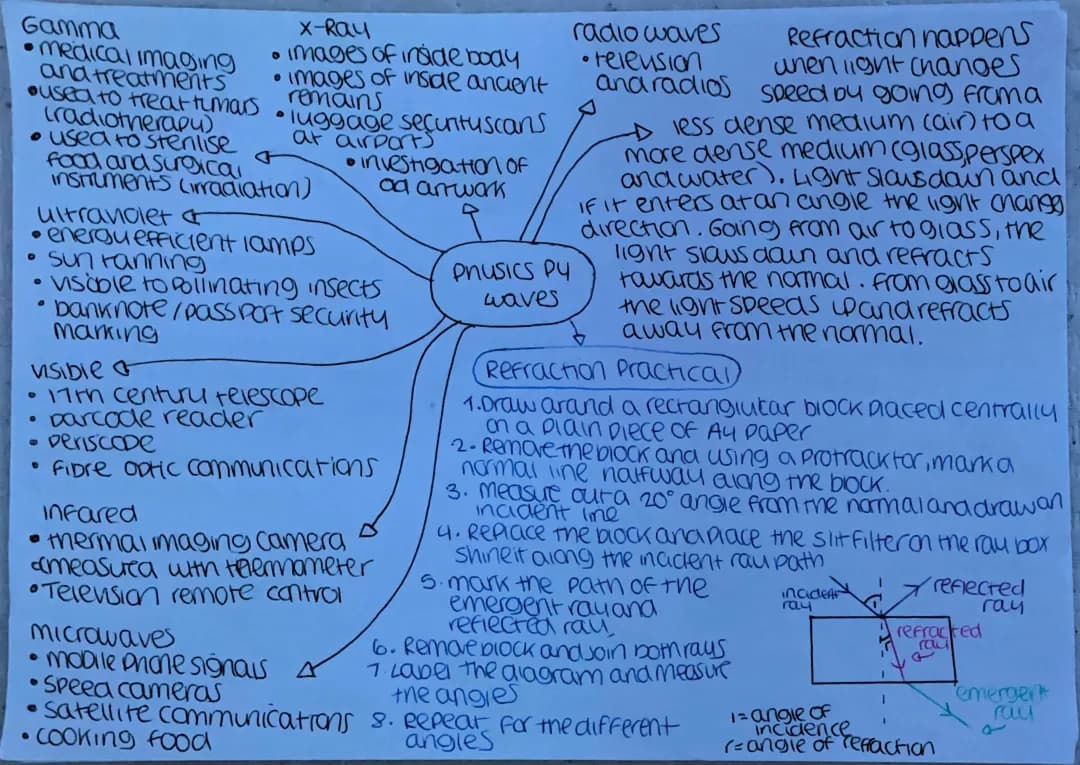 Gamma
• medical imaging
and treatments
• used to treat tumars
(radiotherapy)
• used to sterilise
food and surgical
instruments (irradiation)
X-Ray
• images of inside body
• images of inside ancient
remains
• luggage security scans
at airports
• investigation of
old artwork
radio waves
• television
and radios
Refraction happens
when light changes
speed by going from a
less dense medium (air) to a
more dense medium (glass, perspex
and water). Light slows down and
if it enters at an angle the light changes
direction. Going from air to glass, the
light slows down and refracts
towards the normal. From glass to air
the light speeds up and refracts
away from the normal.
ultraviolet
• energy efficient lamps
• sun tanning
• visible to pollinating insects
• banknote/passport security
marking
Physics P4
waves
visible
• 17th century telescope
• barcode reader
• periscope
• fibre optic communications
infared
• thermal imaging camera
measured with thermometer
• Television remote control
microwaves
• mobile phone signals
• speed cameras
• satellite communications
• cooking food
Refraction Practical
1. Draw around a rectanglular block placed centrally
on a plain piece of A4 paper
2. Remove the block and using a protracktor, mark a
normal line halfway along the block.
3. measure out a 20° angle from the normal and draw an
incident line
4. Replace the block and place the slit filter on the ray box
shine it along the incident ray path
5. mark the path of the
emergent ray and
reflected ray.
6. Remove block and join both rays
7. Label the diagram and measure
the angles
8. Repeat for the different
angles
incident
ray
reflected
ray
refracted
ray
emergent
ray
i = angle of
incidence
r = angle of refraction